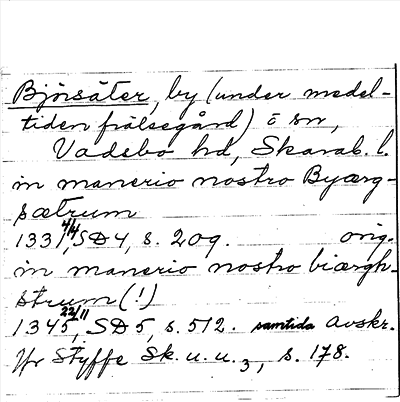 Björsäter, by (under medel-
tiden frälsegård) o sn,
Vadsbo hd, Skarab. l.
in manerio nostro Byærg-
sætrum
1331 4/4, SD 4, s. 209. orig.
in manerio nostro biærgh-
strum (!)
1345 22/11, SD 5, s. 512. samtida avskr.
Jfr Styffe Sk. u. u. 3, s. 178.